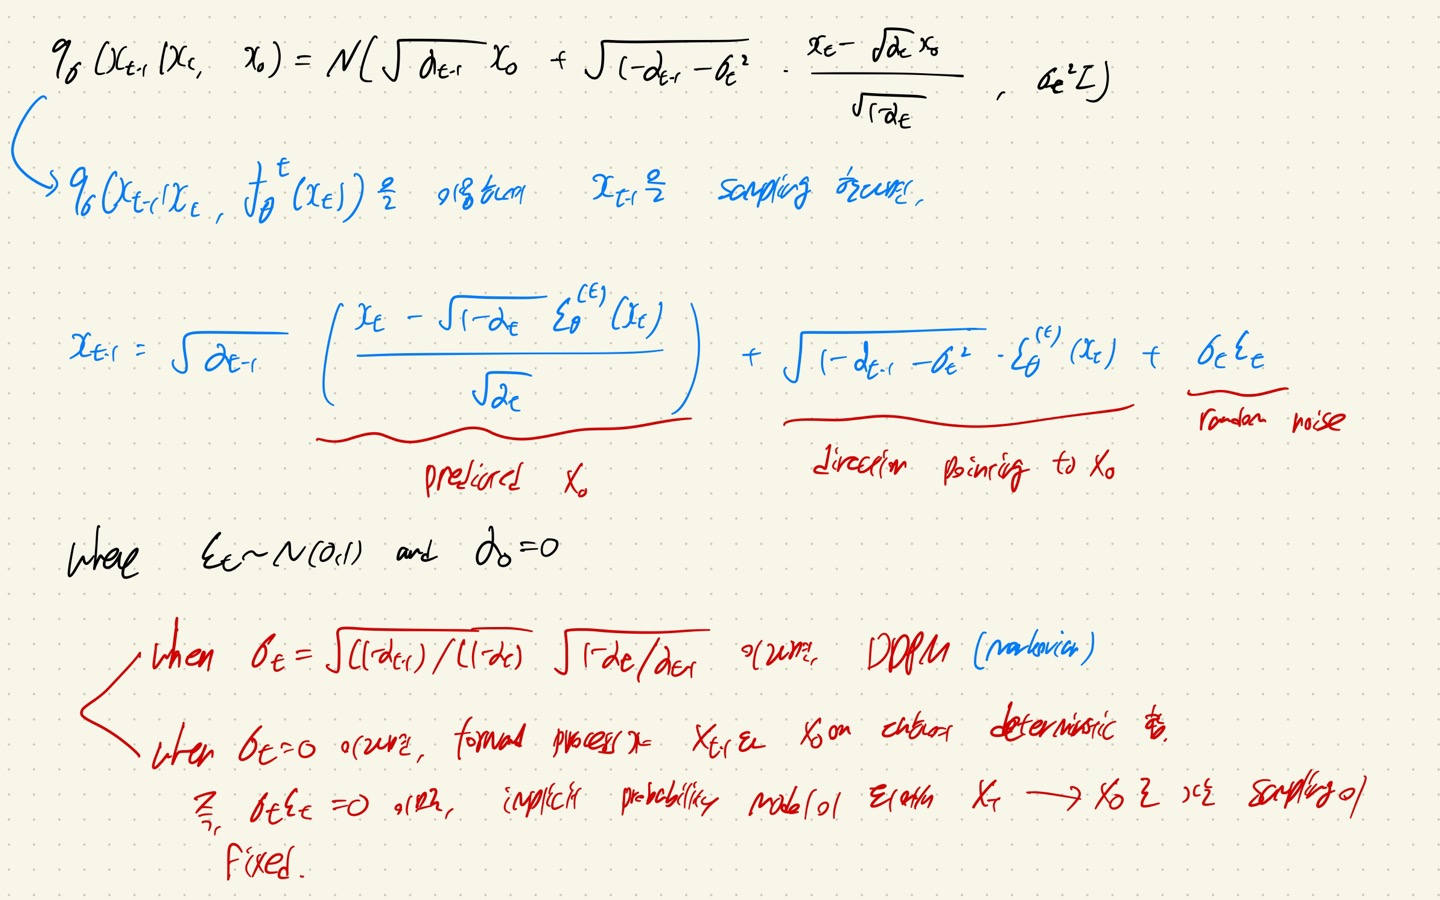 q_σ(x_{t-1}|x_t, x_0) = N(√α_{t-1} x_0 + √(1-α_{t-1}-σ_t²) · (x_t - √α_t x_0)/√(1-α_t), σ_t² I)
q_σ(x_{t-1}|x_t, f_θ^t(x_t))을 이용하여 x_{t-1}을 sampling
x_{t-1} = √α_{t-1} ((x_t - √(1-α_t) ε_θ^{(t)}(x_t))/√α_t) + √(1-α_{t-1}-σ_t²) · ε_θ^{(t)}(x_t) + σ_t ε_t
predicted x_0 direction pointing to x_0 random noise
where ε_t ~ N(0,1) and α_0 = 0
when σ_t = √((1-α_{t-1})/(1-α_t)) √(1-α_t/α_{t-1}) 이라면, DDPM (markovian)
when σ_t = 0 이라면, forward process는 x_{t-1}와 x_0에 대해 deterministic 함.
즉, σ_t ε_t = 0 이며, implicit probability model이 되어 x_T → x_0로 가는 sampling이
fixed.